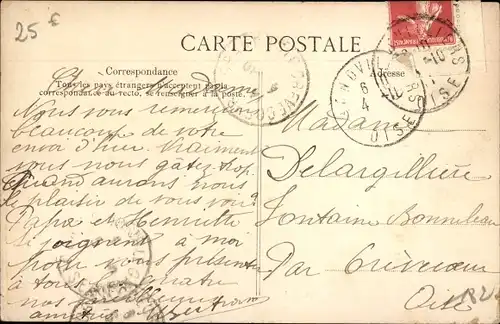 25 €
CARTE POSTALE
Correspondance
Tous les pays étrangers n'acceptent pas la
correspondance au recto, se renseigner à la poste.
Adresse
Dame
Nous vous remercions
beaucoup de votre
envoi d'hier. Vraiment
vous nous gâtez trop.
Quand aurons nous
le plaisir de vous voir?
Papa et Henriette
se joignent à moi
pour vous présenter
à tous
nos
amitiés
Madame
Delargillière
Fontaine Bonneleau
Par Crèvecoeur
Oise
OISE
6
4